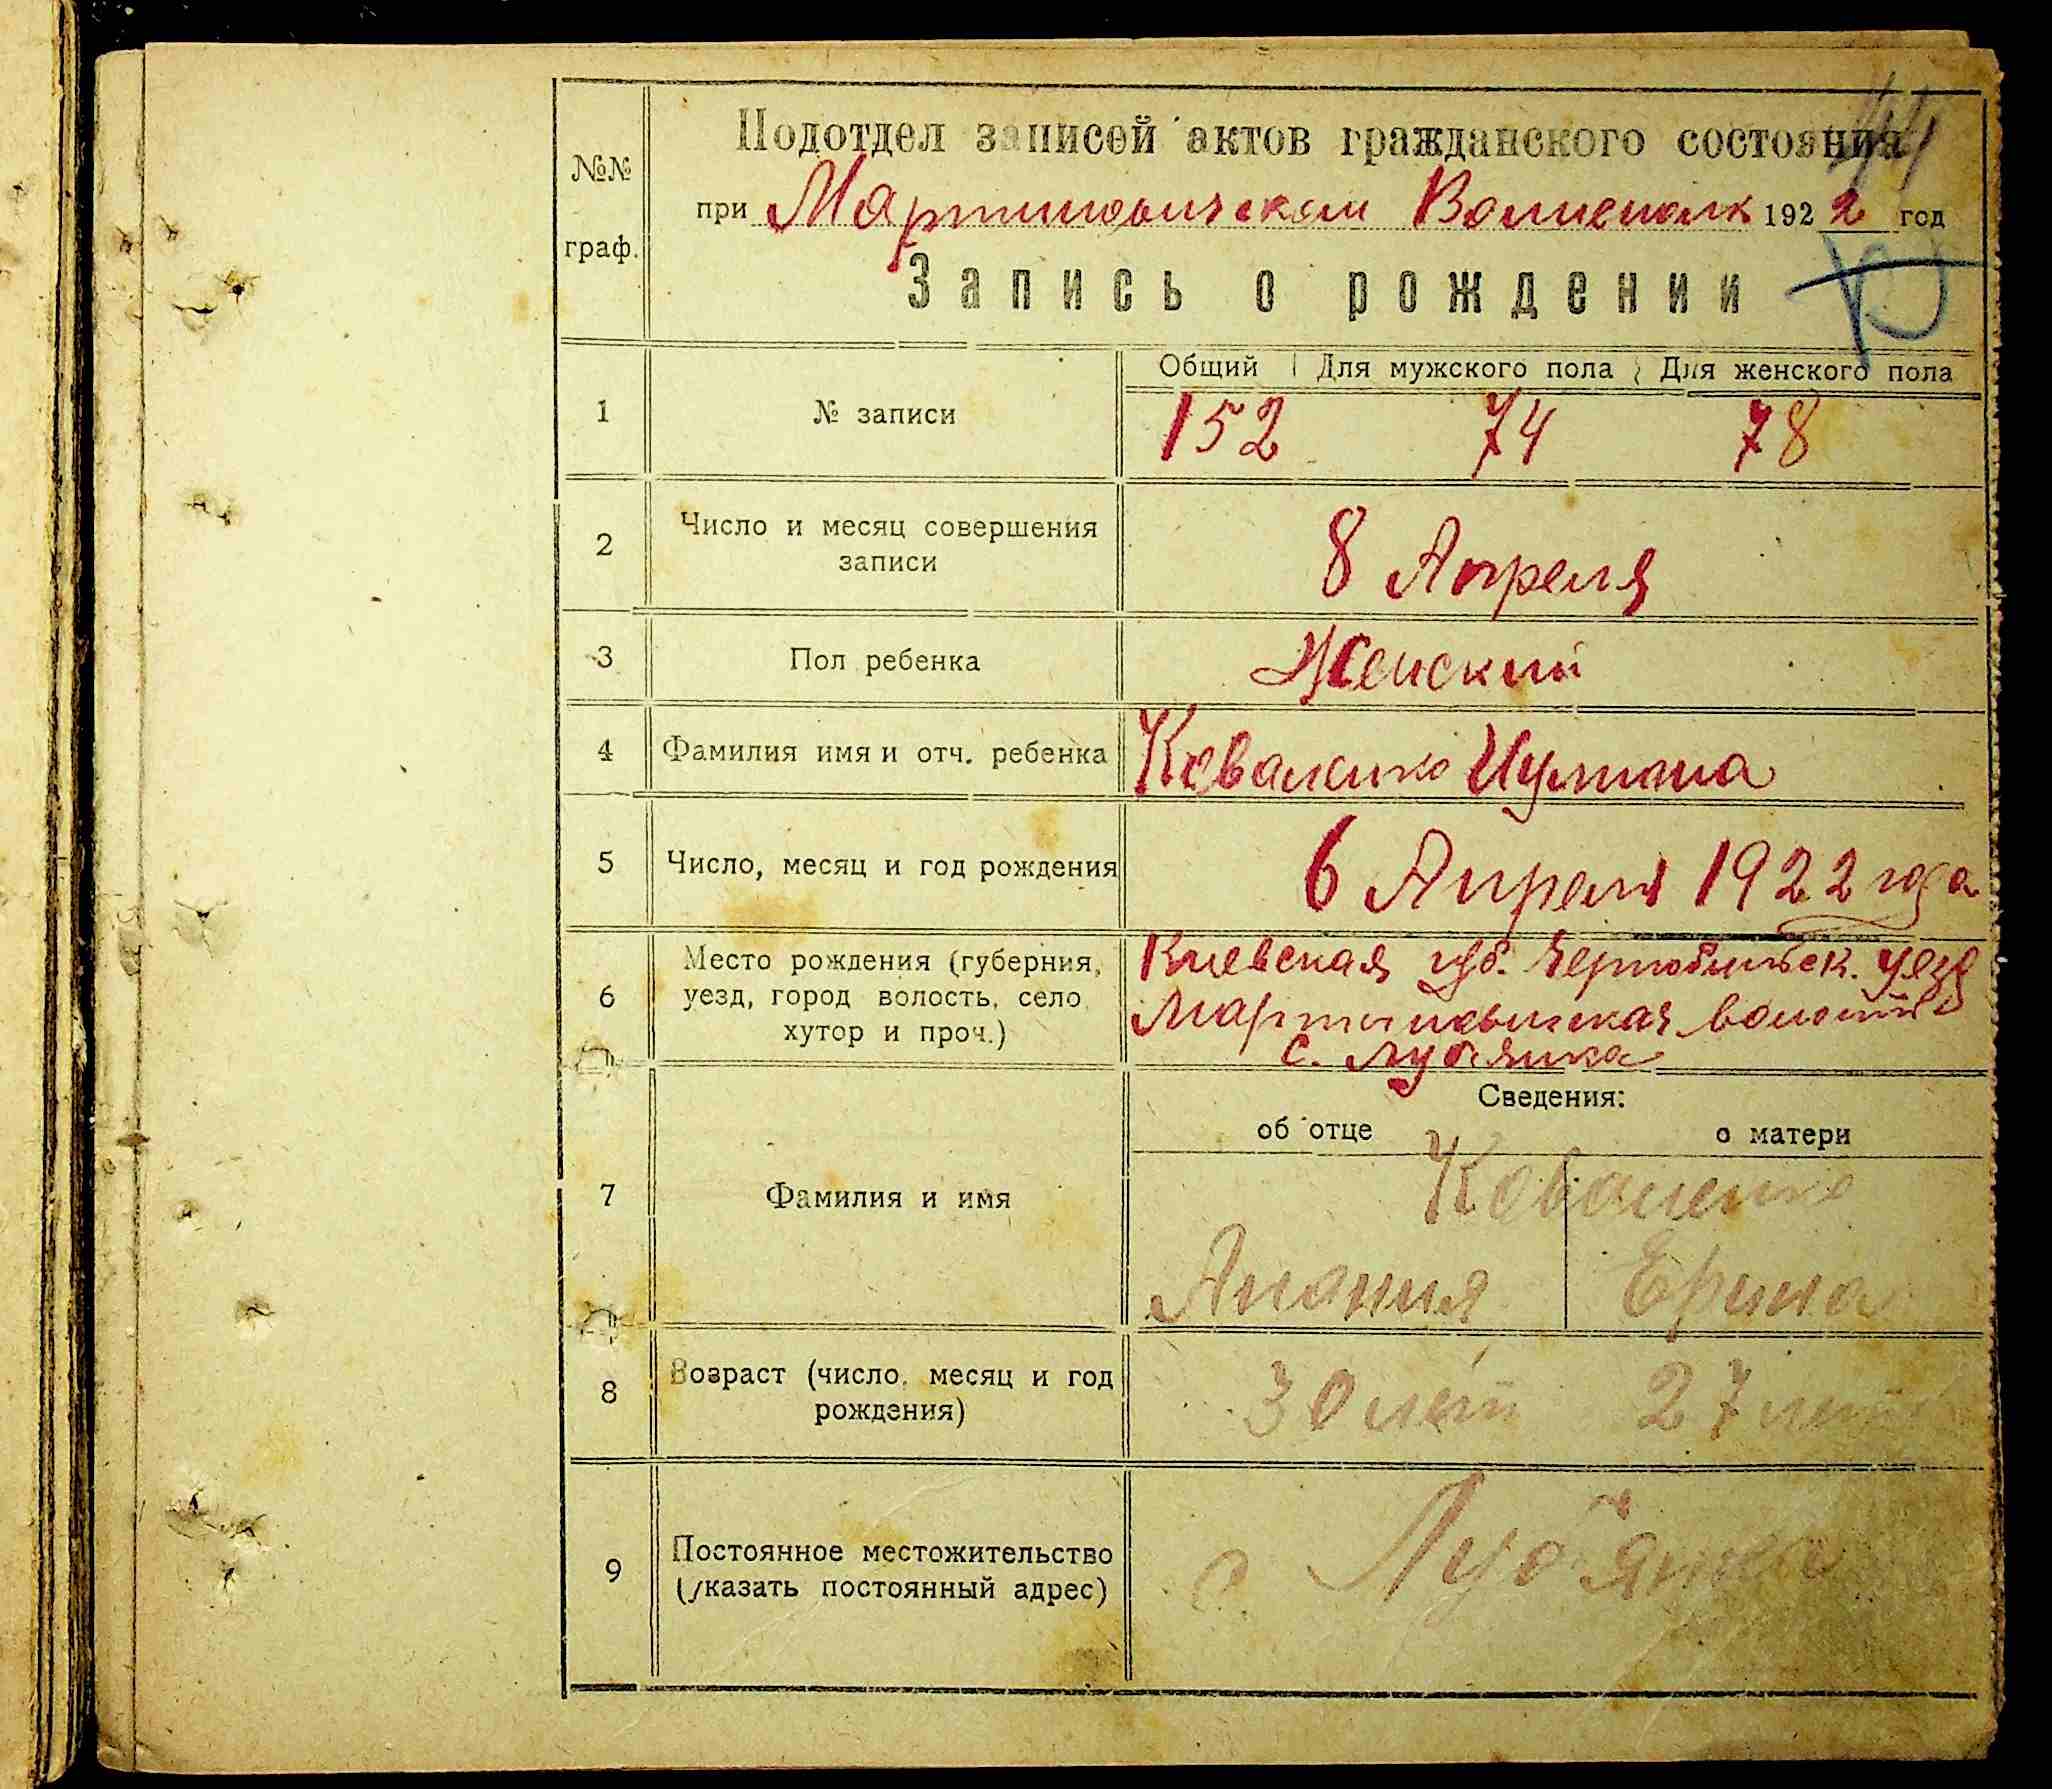 №№ граф.
Подотдел записей актов гражданского состояния
при Мартиновическом Волисполк 1922 год
Запись о рождении
Общий Для мужского пола Для женского пола
1 № записи 152 74 78
2 Число и месяц совершения
записи
8 Апреля
3 Пол ребенка Женский
4 Фамилия имя и отч. ребенка Коваленко
5 Число, месяц и год рождения 6 Апреля 1922 года
6 Место рождения (губерния,
уезд, город волость, село
хутор и проч.)
Киевская губ. Чернобыльск. уезд
Мартиновическая волость
с. Лубянка
Сведения:
об отце о матери
7 Фамилия и имя
Коваленко
Анания Ерина
8 Возраст (число, месяц и год
рождения)
30 лет 27 лет
9 Постоянное местожительство
(указать постоянный адрес)
с. Луб'янка